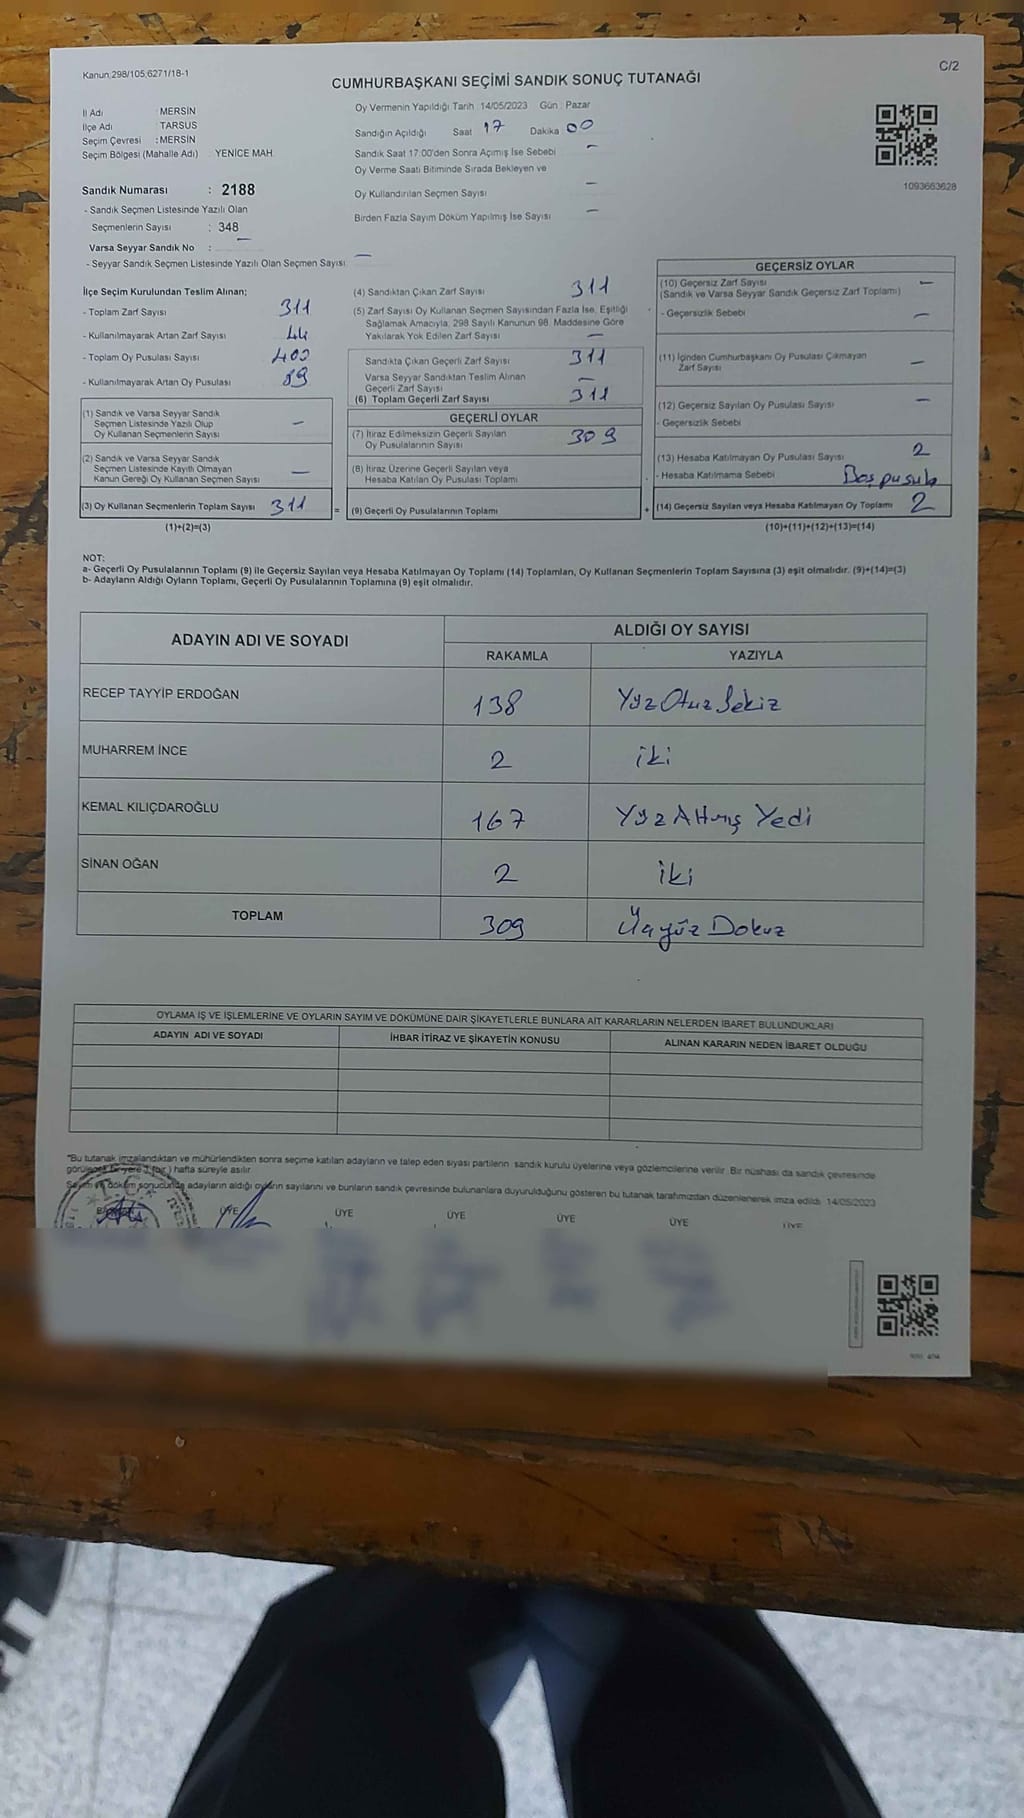 Kanun:298/105;6271/18-1
C/2
CUMHURBAŞKANI SEÇİMİ SANDIK SONUÇ TUTANAĞI
İl Adı : MERSİN
İlçe Adı : TARSUS
Seçim Çevresi : MERSİN
Seçim Bölgesi (Mahalle Adı) : YENİCE MAH.
Sandık Numarası : 2188
- Sandık Seçmen Listesinde Yazılı Olan
Seçmenlerin Sayısı : 348
Varsa Seyyar Sandık No : –
- Seyyar Sandık Seçmen Listesinde Yazılı Olan Seçmen Sayısı: –
Oy Vermenin Yapıldığı Tarih 14/05/2023 Gün : Pazar
Sandığın Açıldığı Saat 17 Dakika 00
Sandık Saat 17:00'den Sonra Açımış İse Sebebi –
Oy Verme Saati Bitiminde Sırada Bekleyen ve
Oy Kullandırılan Seçmen Sayısı –
Birden Fazla Sayım Döküm Yapılmış İse Sayısı –
1093663628
İlçe Seçim Kurulundan Teslim Alınan;
- Toplam Zarf Sayısı 311
- Kullanılmayarak Artan Zarf Sayısı 44
- Toplam Oy Pusulası Sayısı 400
- Kullanılmayarak Artan Oy Pusulası 89
(1) Sandık ve Varsa Seyyar Sandık
Seçmen Listesinde Yazılı Olup
Oy Kullanan Seçmenlerin Sayısı –
(2) Sandık ve Varsa Seyyar Sandık
Seçmen Listesinde Kayıtlı Olmayan
Kanun Gereği Oy Kullanan Seçmen Sayısı –
(3) Oy Kullanan Seçmenlerin Toplam Sayısı 311 =
(1)+(2)=(3)
(4) Sandıktan Çıkan Zarf Sayısı 311
(5) Zarf Sayısı Oy Kullanan Seçmen Sayısından Fazla İse, Eşitliği
Sağlamak Amacıyla, 298 Sayılı Kanunun 98. Maddesine Göre
Yakılarak Yok Edilen Zarf Sayısı –
Sandıkta Çıkan Geçerli Zarf Sayısı 311
Varsa Seyyar Sandıktan Teslim Alınan
Geçerli Zarf Sayısı –
(6) Toplam Geçerli Zarf Sayısı 311
GEÇERLİ OYLAR
(7) İtiraz Edilmeksizin Geçerli Sayılan
Oy Pusulalarının Sayısı 309
(8) İtiraz Üzerine Geçerli Sayılan veya
Hesaba Katılan Oy Pusulası Toplamı
(9) Geçerli Oy Pusulalarının Toplamı +
GEÇERSİZ OYLAR
(10) Geçersiz Zarf Sayısı –
(Sandık ve Varsa Seyyar Sandık Geçersiz Zarf Toplamı)
- Geçersizlik Sebebi –
(11) İçinden Cumhurbaşkanı Oy Pusulası Çıkmayan
Zarf Sayısı –
(12) Geçersiz Sayılan Oy Pusulası Sayısı –
- Geçersizlik Sebebi
(13) Hesaba Katılmayan Oy Pusulası Sayısı 2
- Hesaba Katılmama Sebebi Boş pusula
(14) Geçersiz Sayılan veya Hesaba Katılmayan Oy Toplamı 2
(10)+(11)+(12)+(13)=(14)
NOT:
a- Geçerli Oy Pusulalarının Toplamı (9) ile Geçersiz Sayılan veya Hesaba Katılmayan Oy Toplamı (14) Toplamları, Oy Kullanan Seçmenlerin Toplam Sayısına (3) eşit olmalıdır. (9)+(14)=(3)
b- Adayların Aldığı Oyların Toplamı, Geçerli Oy Pusulalarının Toplamına (9) eşit olmalıdır.
ADAYIN ADI VE SOYADI ALDIĞI OY SAYISI
RAKAMLA YAZIYLA
RECEP TAYYİP ERDOĞAN 138 Yüz Otuz Sekiz
MUHARREM İNCE 2 iki
KEMAL KILIÇDAROĞLU 167 Yüz Altmış Yedi
SİNAN OĞAN 2 iki
TOPLAM 309 Üçyüz Dokuz
OYLAMA İŞ VE İŞLEMLERİNE VE OYLARIN SAYIM VE DÖKÜMÜNE DAİR ŞİKAYETLERLE BUNLARA AİT KARARLARIN NELERDEN İBARET BULUNDUKLARI
ADAYIN ADI VE SOYADI İHBAR İTİRAZ VE ŞİKAYETİN KONUSU ALINAN KARARIN NEDEN İBARET OLDUĞU
"Bu tutanak imzalandıktan ve mühürlendikten sonra seçime katılan adayların ve talep eden siyasi partilerin sandık kurulu üyelerine veya gözlemcilerine verilir. Bir nüshası da sandık çevresinde
görülecek bir yere 1 (bir) hafta süreyle asılır.
Sayım ve döküm sonucunda adayların aldığı oyların sayılarını ve bunların sandık çevresinde bulunanlara duyurulduğunu gösteren bu tutanak tarafımızdan düzenlenerek imza edildi. 14/05/2023
T.C.
BAŞKAN ÜYE ÜYE ÜYE ÜYE ÜYE ÜYE